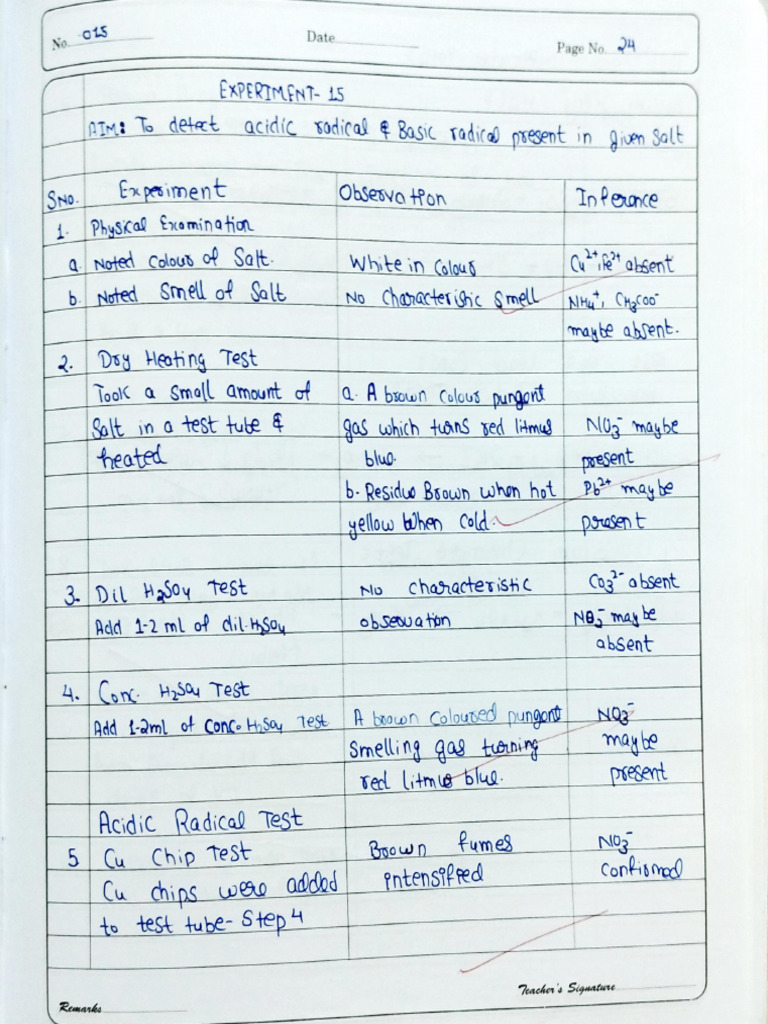 No. 015 Date Page No. 24
EXPERIMENT- 15
AIM: To detect acidic radical & Basic radical present in given salt
SNO. Experiment Observation Inference
1. Physical Examination
a. Noted colour of Salt. White in Colour Cu²⁺, Fe²⁺ absent
b. Noted Smell of Salt No Characteristic Smell NH₄⁺, CH₃COO⁻
maybe absent.
2. Dry Heating Test
Took a small amount of a. A brown colour pungent
Salt in a test tube & gas which turns red litmus NO₃⁻ maybe
heated blue. present
b. Residue Brown when hot Pb²⁺ maybe
yellow when cold. present
3. Dil H₂SO₄ Test No characteristic CO₃²⁻ absent
Add 1-2 ml of dil. H₂SO₄ observation maybe
absent
4. Conc. H₂SO₄ Test
Add 1-2ml of conc. H₂SO₄ Test A brown coloured pungent NO₃⁻
Smelling gas turning maybe
red litmus blue. present
Acidic Radical Test
5 Cu Chip Test Brown fumes NO₃⁻
Cu chips were added intensified Confirmed
to test tube- Step 4
Teacher's Signature
Remarks